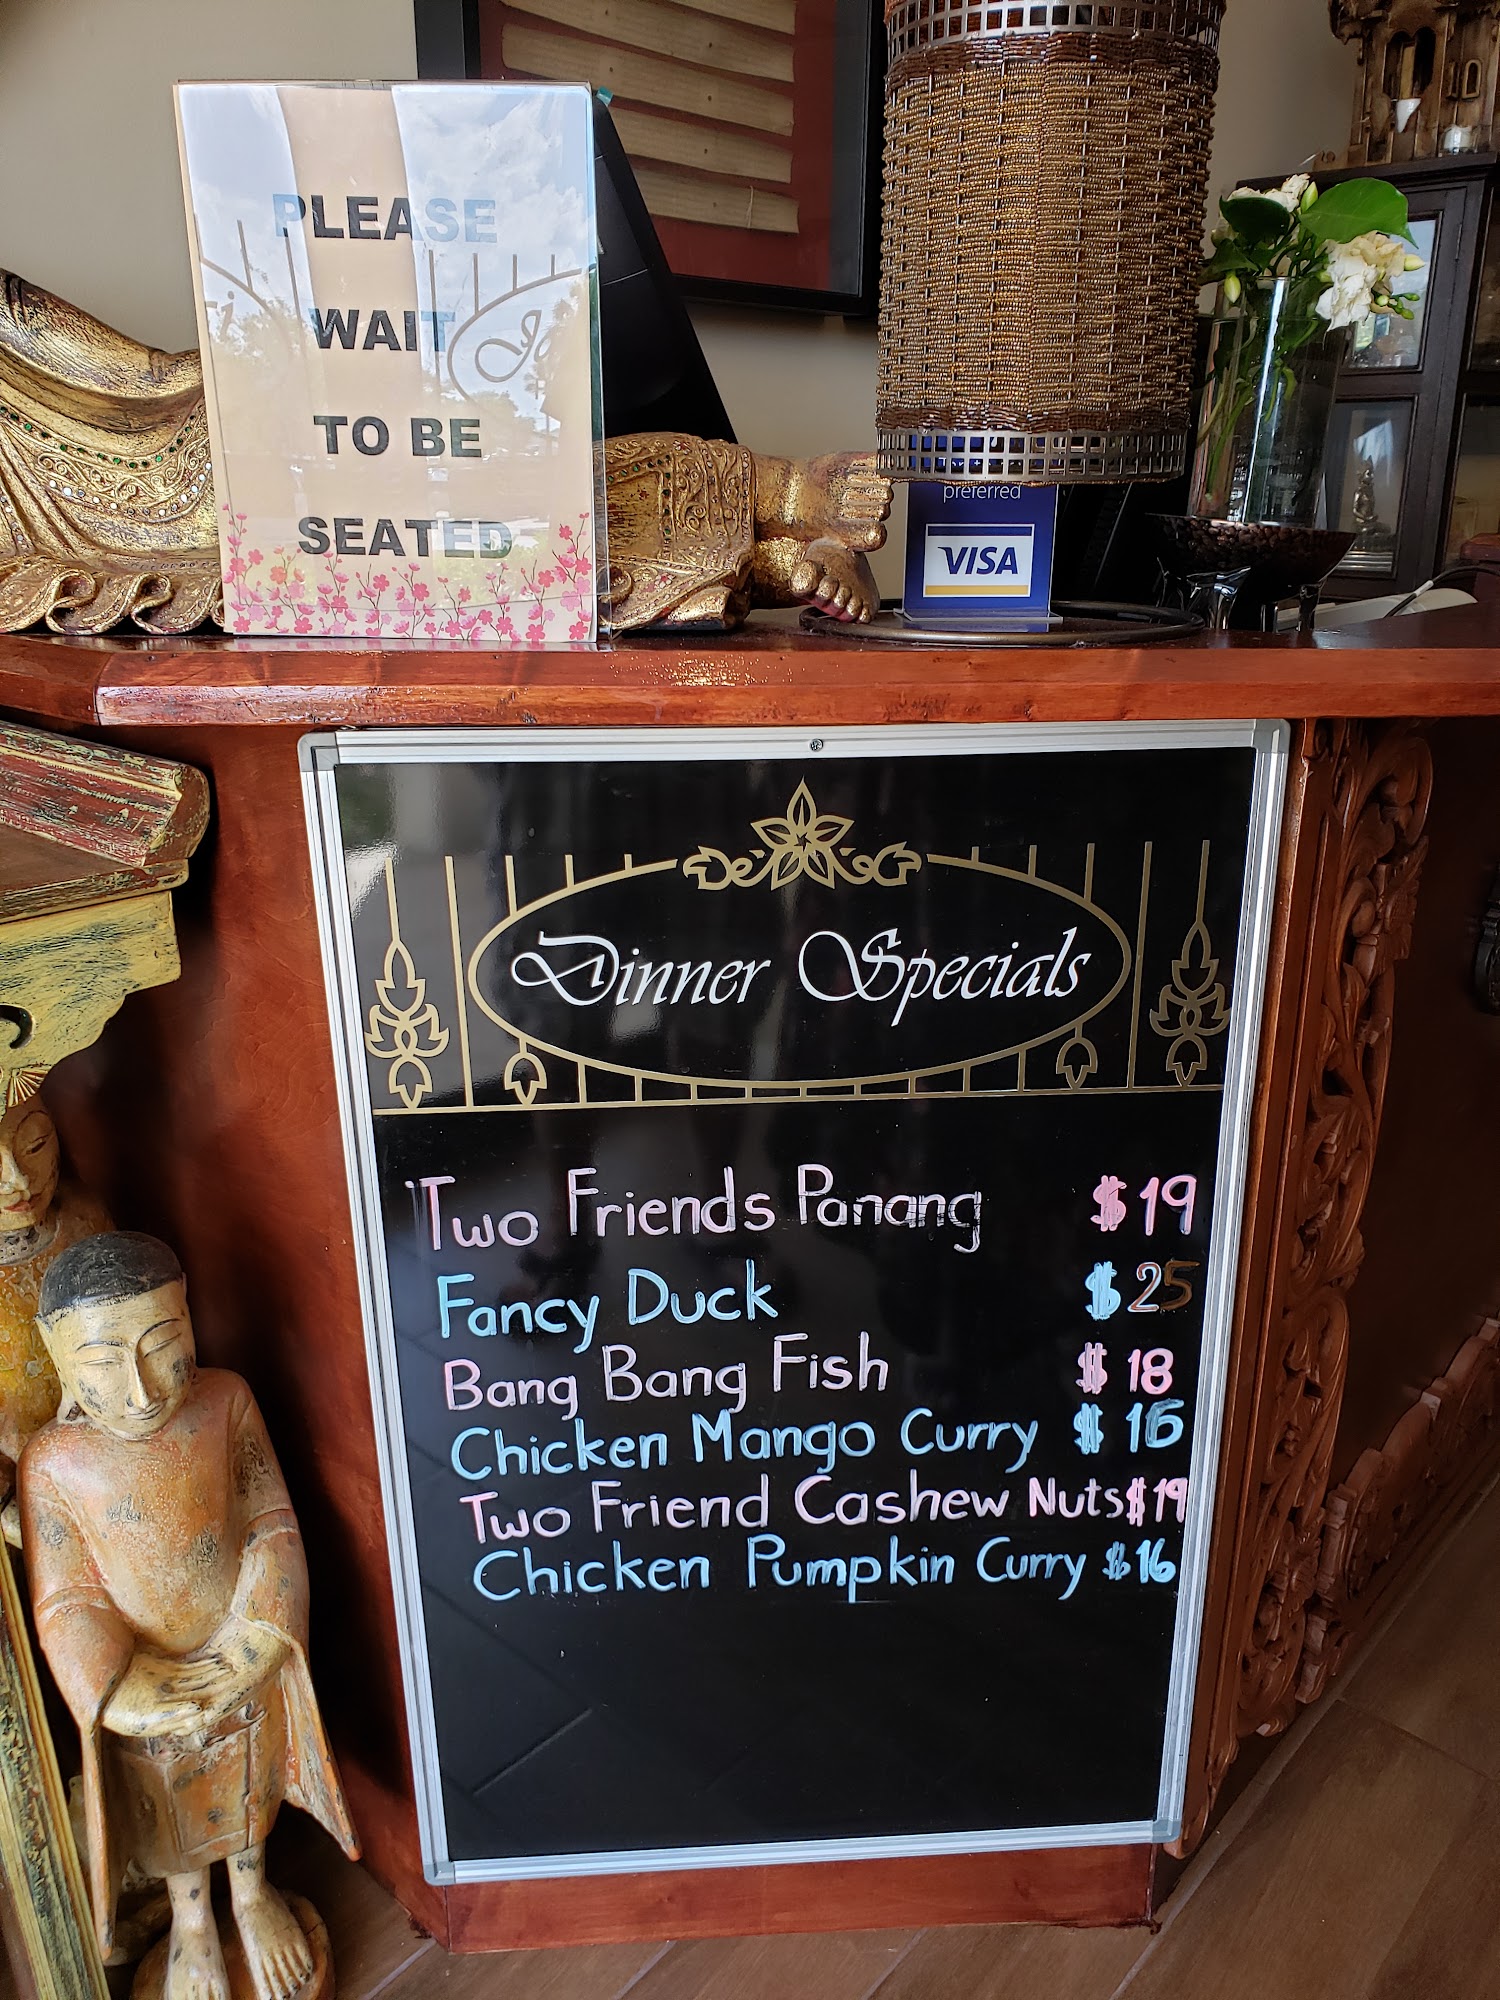 PLEASE
WAIT
TO BE
SEATED
preferred
VISA
Dinner Specials
Two Friends Panang $19
Fancy Duck $25
Bang Bang Fish $18
Chicken Mango Curry $16
Two Friend Cashew Nuts $19
Chicken Pumpkin Curry $16